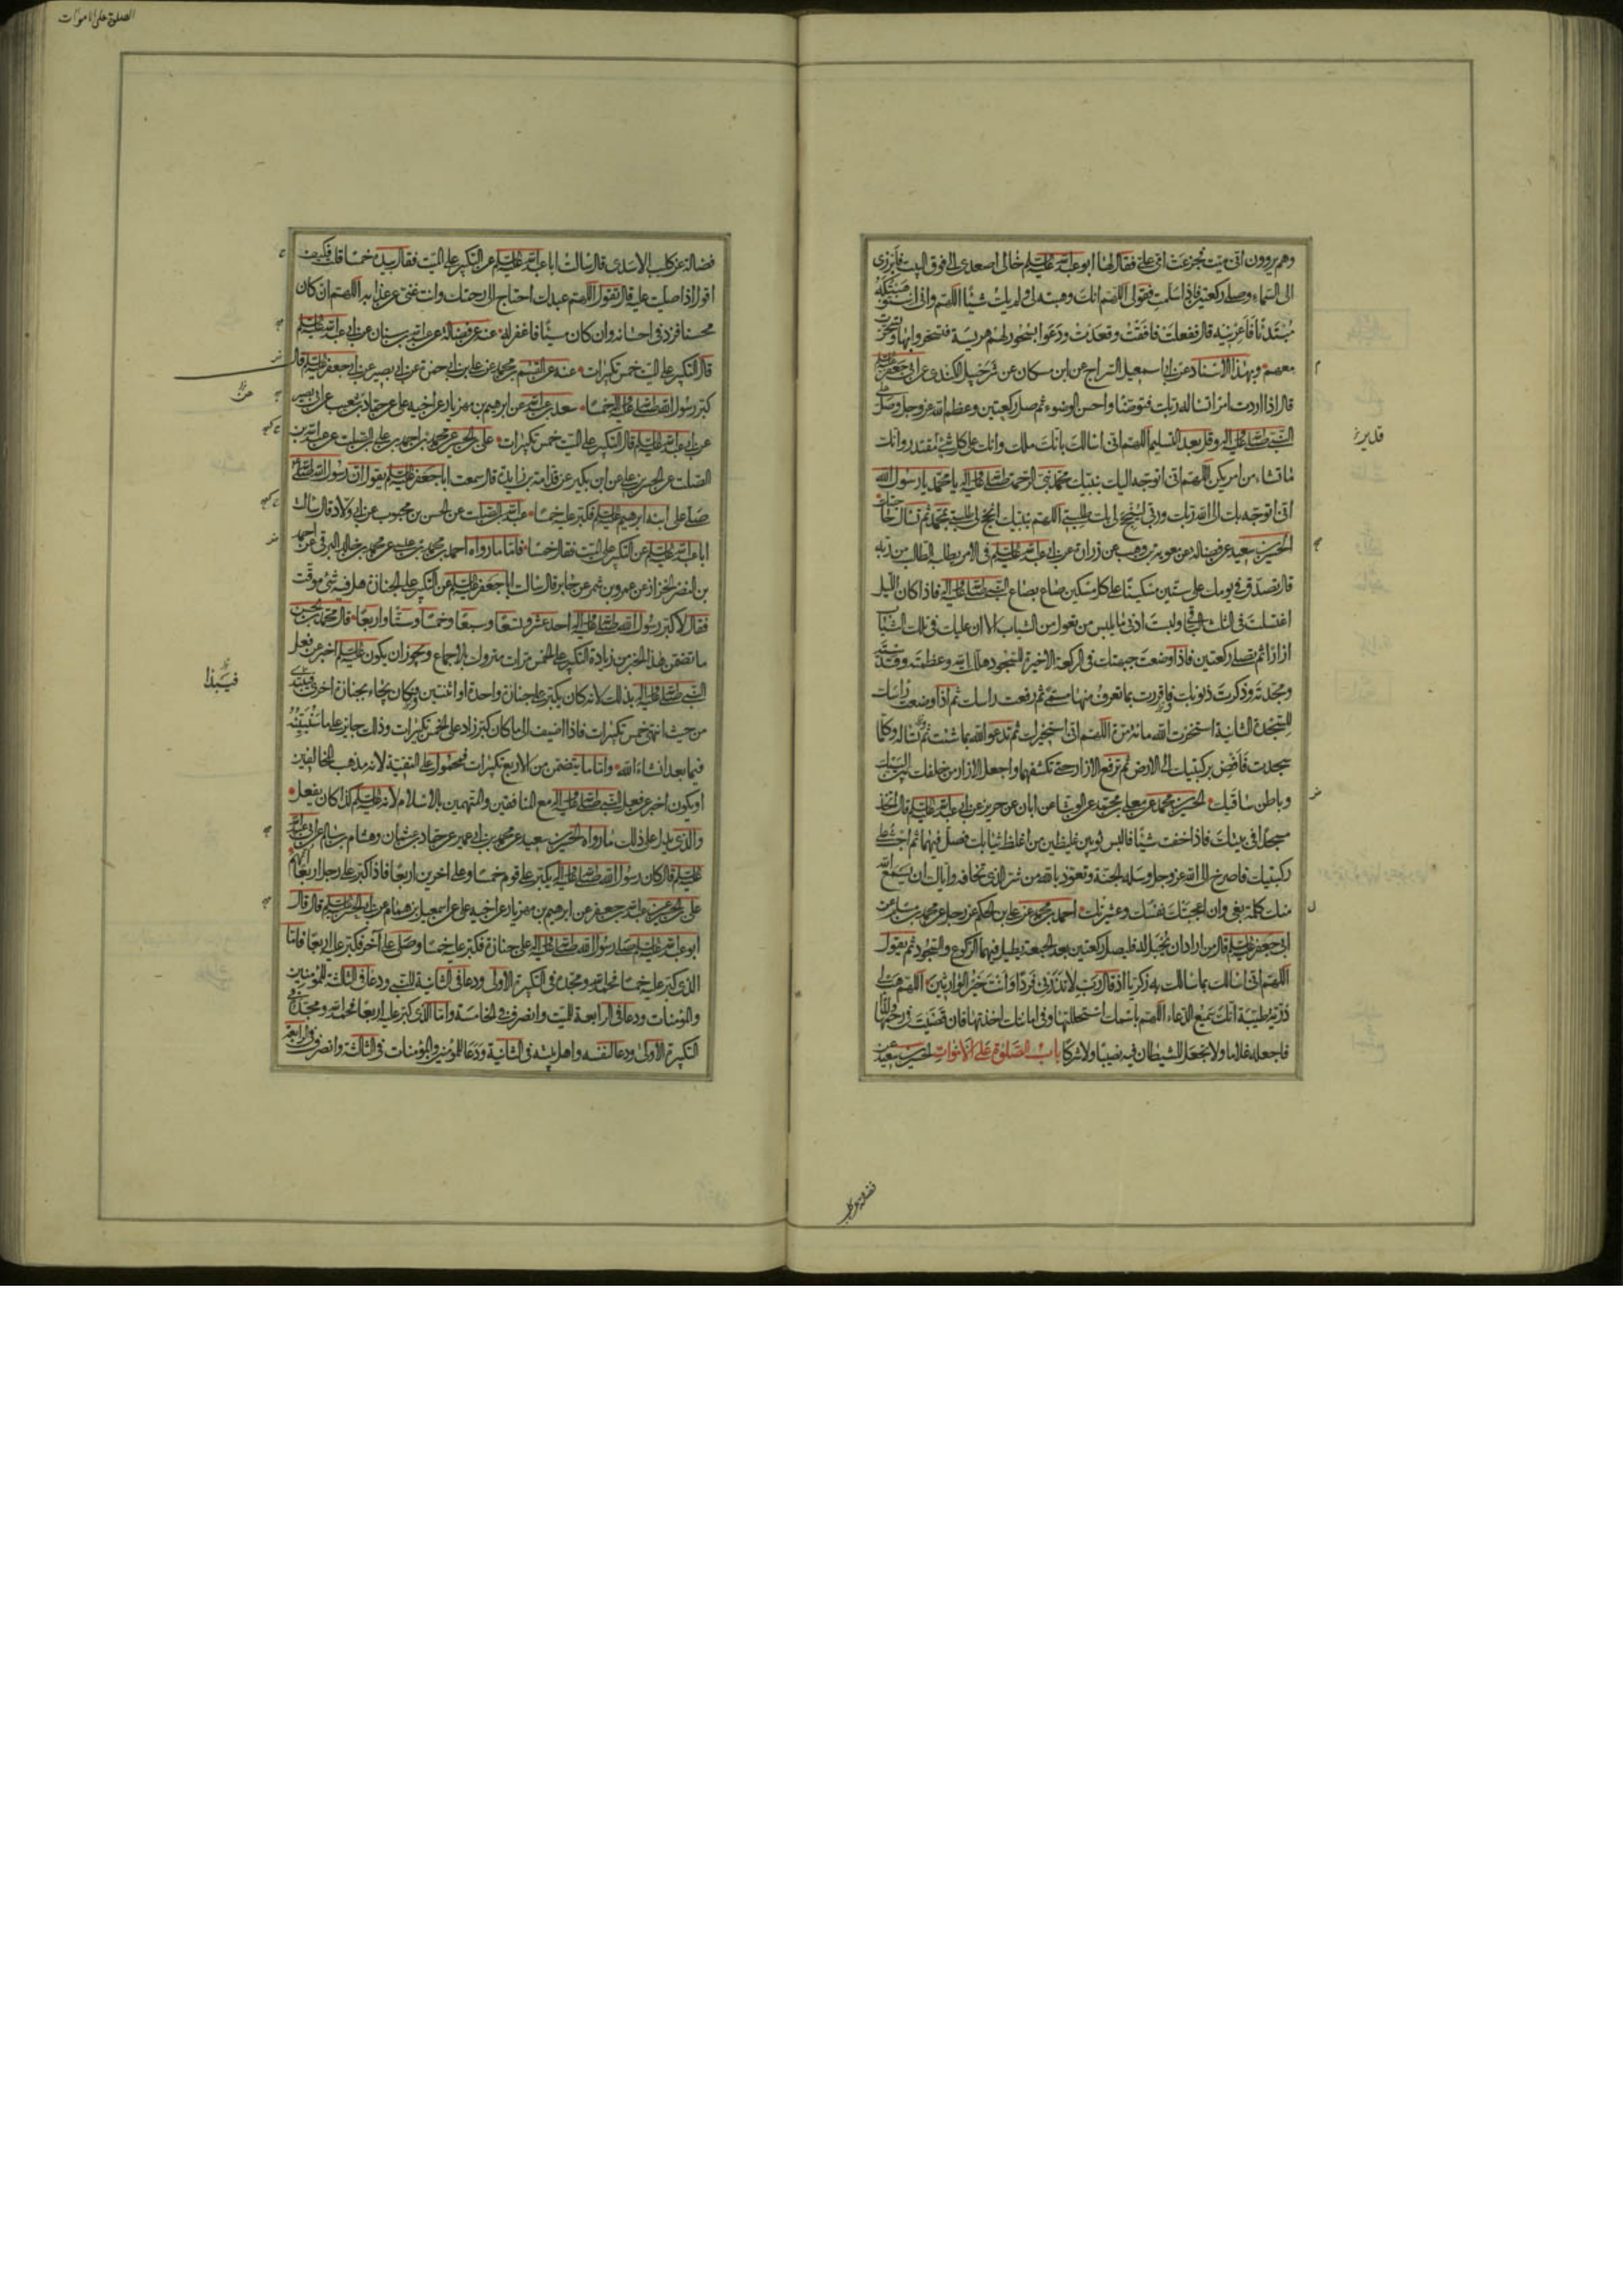 وهم يروون انى ميت فجزعت امى على فقال لها ابو عبدالله عليه السلام خالى اصعدى الى فوق البيت فابرزى
الى السماء وصلى ركعتين فاذا سلمت فقولى اللهم انك وهبته لى ولم يك شيئا اللهم وانى استوهبكه
مبتدئا فاعرنيه قال ففعلت فافقت وقعدت ودعوا بسحور لهم هريسة فتسحروا بها وتسحرت
معهم وبهذا الاسناد عن ابى اسمعيل السراج عن ابن مسكان عن شرحبيل الكندى عن ابى جعفر عليه السلام
قال اذا اردت امرا تسأله ربك فتوضأ واحسن الوضوء ثم صل ركعتين وعظم الله عز وجل وصل على
النبى صلى الله عليه واله وقل بعد التسليم اللهم انى اسالك بانك ملك وانك على كل شئ مقتدر وانك
قدير
ما تشاء من امر يكن اللهم انى اتوجه اليك بنبيك محمد نبى الرحمة صلى الله عليه واله يا محمد يا رسول الله
انى اتوجه بك الى الله ربك وربى لينجح لى بك طلبتى اللهم بنبيك انجح لى طلبتى بمحمد ثم تسال حاجتك
الحسين بن سعيد عن فضالة عن معوية بن وهب عن زرارة عن ابى عبدالله عليه السلام فى الامر يطلبه الطالب من ربه
قال تصدق فى يومك على ستين مسكينا على كل مسكين صاع بصاع النبى صلى الله عليه واله فاذا كان الليل
اغتسلت فى الثلث الباقى ولبست ادنى ما يلبس من تعول من الثياب الا ان عليك فى تلك الثياب
ازارا ثم تصلى ركعتين فاذا وضعت جبهتك فى الركعة الاخيرة للسجود هللت الله وعظمته وقدسته
ومجدته وذكرت ذنوبك فاقررت بما تعرف منها مسمى ثم رفعت راسك ثم اذا وضعت راسك
للسجدة الثانية استخرت الله مائة مرة اللهم انى استخيرك ثم تدعو الله بما شئت ثم تساله وكلما
سجدت فافض بركبتيك الى الارض ثم ترفع الازار حتى تكشفهما واجعل الازار من خلفك بين اليتيك
وباطن ساقيك الحسين بن محمد عن معلى بن محمد عن الوشا عن ابان عن حريز عن ابى عبدالله عليه السلام قال اتخذ
مسجدا فى بيتك فاذا خفت شيئا فالبس ثوبين غليظين من اغلظ ثيابك فصل فيهما ثم اجث على
ركبتيك فاصرخ الى الله عز وجل وسله الجنة وتعوذ بالله من شر الذى تخافه واياك ان يسمع الله
منك كلمة بغى وان اعجبتك نفسك وعشيرتك احمد بن محمد عن على بن الحكم عن رجل عن محمد بن مسلم عن
ابى جعفر عليه السلام قال من اراد ان يحبل له فليصل ركعتين بعد الجمعة يطيل فيهما الركوع والسجود ثم يقول
اللهم انى اسالك بما سالك به زكريا اذ قال رب لا تذرنى فردا وانت خير الوارثين اللهم هب لى
ذرية طيبة انك سميع الدعاء اللهم باسمك استحللتها وفى امانتك اخذتها فان قضيت فى رحمها ولدا
فاجعله غلاما ولا تجعل للشيطان فيه نصيبا ولا شركا باب الصلوة على الاموات الحسين بن سعيد عن
فضالة عن كليب
الصلوة على الاموات
فضالة عن كليب الاسدى قال سالت ابا عبدالله عليه السلام عن التكبير على الميت فقال بيده خمسا قلت فكيف
اقول اذا صليت عليه قال تقول اللهم عبدك احتاج الى رحمتك وانت غنى عن عذابه اللهم ان كان
محسنا فزد فى احسانه وان كان مسيئا فاغفر له عنه عن فضالة عن عبدالله بن سنان عن ابى عبدالله عليه السلام
قال التكبير على الميت خمس تكبيرات عنه عن القسم بن محمد عن على بن ابى حمزة عن ابى بصير عن ابى جعفر عليه السلام قال
كبر رسول الله صلى الله عليه واله خمسا سعد بن عبدالله عن ابرهيم بن مهزيار عن اخيه على عن حماد بن شعيب عن ابى بصير
عن ابى عبدالله عليه السلام قال التكبير على الميت خمس تكبيرات على بن الحسين عن محمد بن احمد بن على بن الصلت عن عبدالله بن
الصلت عن الحسن بن على عن ابن بكير عن قدامة بن زايدة قال سمعت ابا جعفر عليه السلام يقول ان رسول الله صلى الله عليه واله
صلى على ابنه ابرهيم عليه السلام فكبر عليه خمسا عبدالله بن الصلت عن الحسن بن محبوب عن ابى ولاد قال سالت
ابا عبدالله عليه السلام عن التكبير على الميت فقال خمسا فاما ما رواه احمد بن محمد بن عيسى عن محمد بن خالد البرقى عن احمد
بن النضر الخزاز عن عمرو بن شمر عن جابر قال سالت ابا جعفر عليه السلام عن التكبير على الجنازة هل فيه شئ موقت
فقال لا كبر رسول الله صلى الله عليه واله احد عشر وتسعا وسبعا وخمسا وستا واربعا قال محمد بن الحسن
ما تضمن هذا الخبر من زيادة التكبير على الخمس مرات متروك بالاجماع ويجوز ان يكون عليه السلام اخبر عن فعل
النبى صلى الله عليه واله بذلك لانه كان يكبر على جنازة واحدة او اثنتين فكان يجاء بجنازة اخرى فيبتدى
من حيث انتهى خمس تكبيرات فاذا اضيف الى ما كان كبر زاد على الخمس تكبيرات وذلك جايز على ما سنبينه
فيما بعد انشاء الله واما ما يتضمن من الاربع تكبيرات فمحمول على التقية لانه مذهب المخالفين
او يكون اخبر عن فعل النبى صلى الله عليه واله مع المنافقين والمتهمين بالاسلام لانه عليه السلام كذا كان يفعل
والذى يدل على ذلك ما رواه الحسين بن سعيد عن محمد بن ابى عمير عن حماد بن عثمان وهشام بن سالم عن ابى عبدالله
عليه السلام قال كان رسول الله صلى الله عليه واله يكبر على قوم خمسا وعلى اخرين اربعا فاذا كبر على رجل اربعا اتهم
على بن الحسين عن عبدالله بن جعفر عن ابرهيم بن مهزيار عن اخيه على عن اسمعيل بن همام عن ابى الحسن عليه السلام قال قال
ابو عبدالله عليه السلام صلى رسول الله صلى الله عليه واله على جنازة فكبر عليه خمسا وصلى على آخر فكبر عليه اربعا فاما
الذى كبر عليه خمسا فحمد الله ومجده فى التكبيرة الاولى ودعا فى الثانية للنبى ودعا فى الثالثة للمؤمنين
والمؤمنات ودعا فى الرابعة للميت وانصرف فى الخامسة واما الذى كبر عليه اربعا فحمد الله ومجده فى
التكبيرة الاولى ودعا لنفسه واهل بيته فى الثانية ودعا للمؤمنين والمؤمنات فى الثالثة وانصرف فى الرابعة